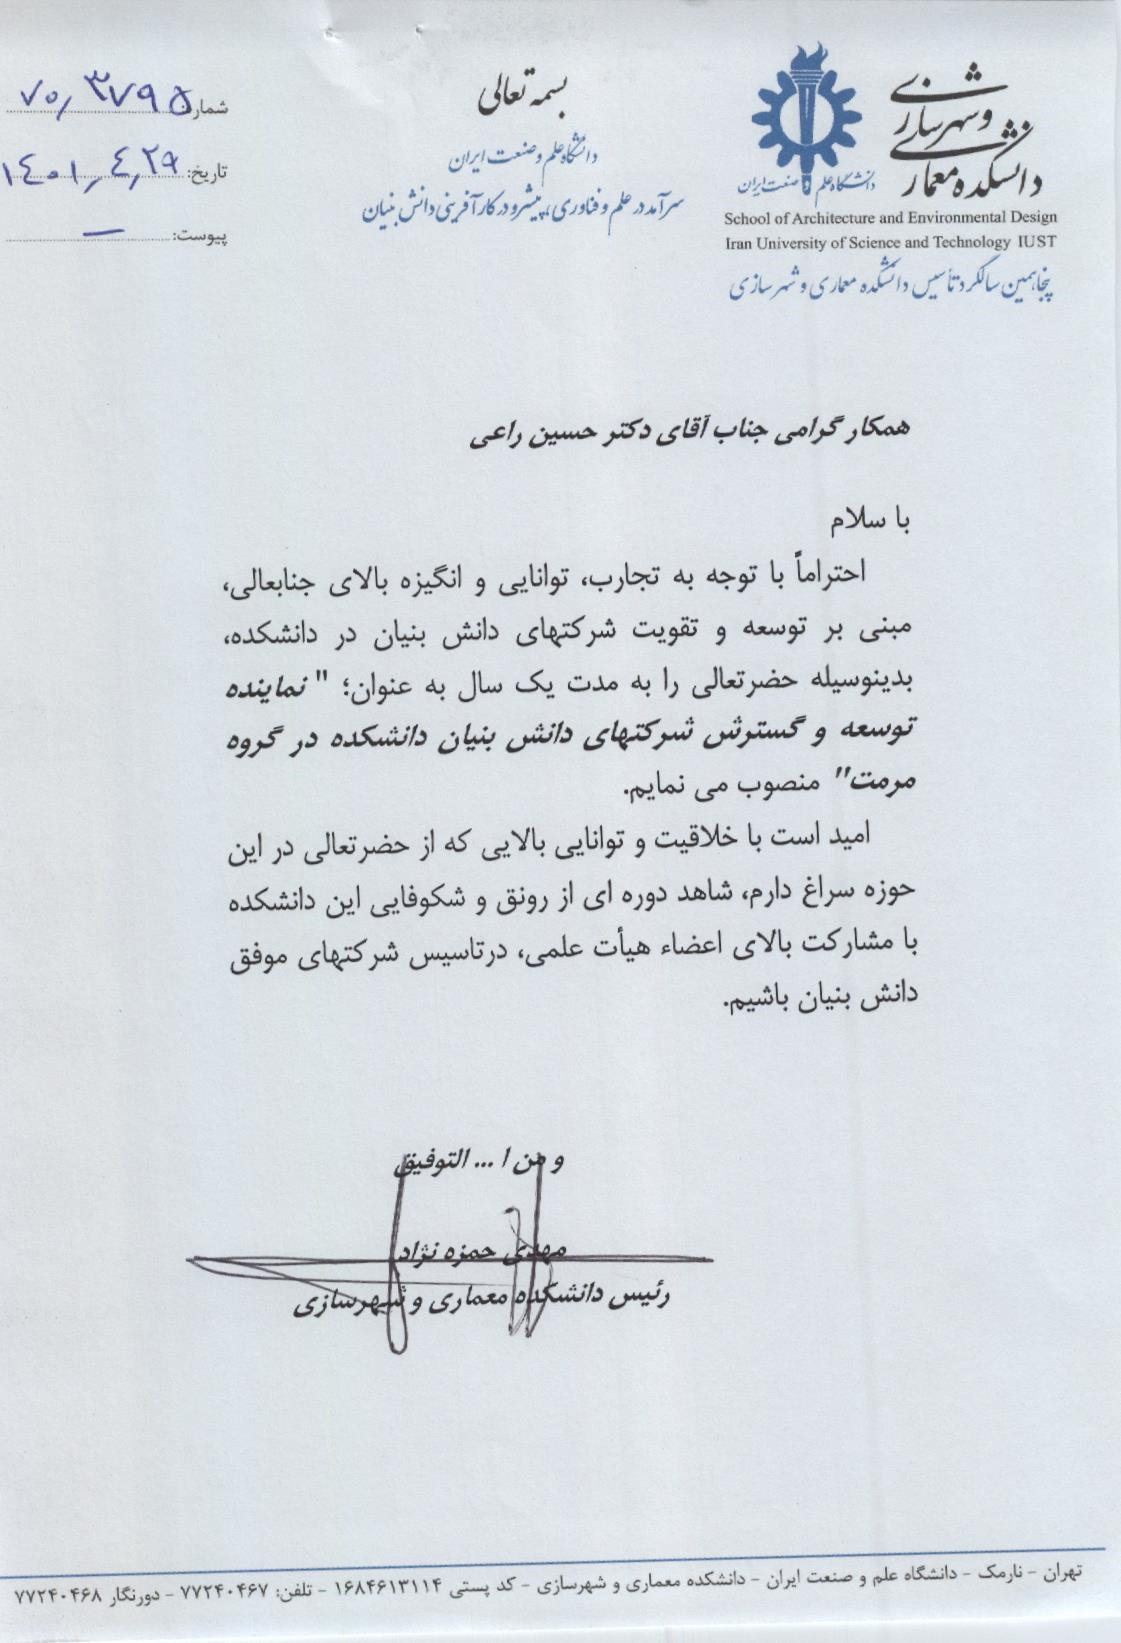 بسمه تعالی
دانشگاه علم و صنعت ایران
سرآمد در علم و فناوری، پیشرو در کارآفرینی دانش بنیان
دانشکده معماری و شهرسازی
دانشگاه علم و صنعت ایران
School of Architecture and Environmental Design
Iran University of Science and Technology IUST
پنجاهمین سالگرد تأسیس دانشکده معماری و شهرسازی
شماره: ۷۰/۳۷۹۵
تاریخ: ۱۴۰۱/۴/۲۹
پیوست: —
همکار گرامی جناب آقای دکتر حسین راعی
با سلام
احتراماً با توجه به تجارب، توانایی و انگیزه بالای جنابعالی،
مبنی بر توسعه و تقویت شرکتهای دانش بنیان در دانشکده،
بدینوسیله حضرتعالی را به مدت یک سال به عنوان؛ "نماینده
توسعه و گسترش شرکتهای دانش بنیان دانشکده در گروه
مرمت" منصوب می نمایم.
امید است با خلاقیت و توانایی بالایی که از حضرتعالی در این
حوزه سراغ دارم، شاهد دوره ای از رونق و شکوفایی این دانشکده
با مشارکت بالای اعضاء هیأت علمی، درتاسیس شرکتهای موفق
دانش بنیان باشیم.
و من ا... التوفیق
مهدی حمزه نژاد
رئیس دانشکده معماری و شهرسازی
تهران - نارمک - دانشگاه علم و صنعت ایران - دانشکده معماری و شهرسازی - کد پستی ۱۶۸۴۶۱۳۱۱۴ - تلفن: ۷۷۲۴۰۴۶۷ - دورنگار ۷۷۲۴۰۴۶۸